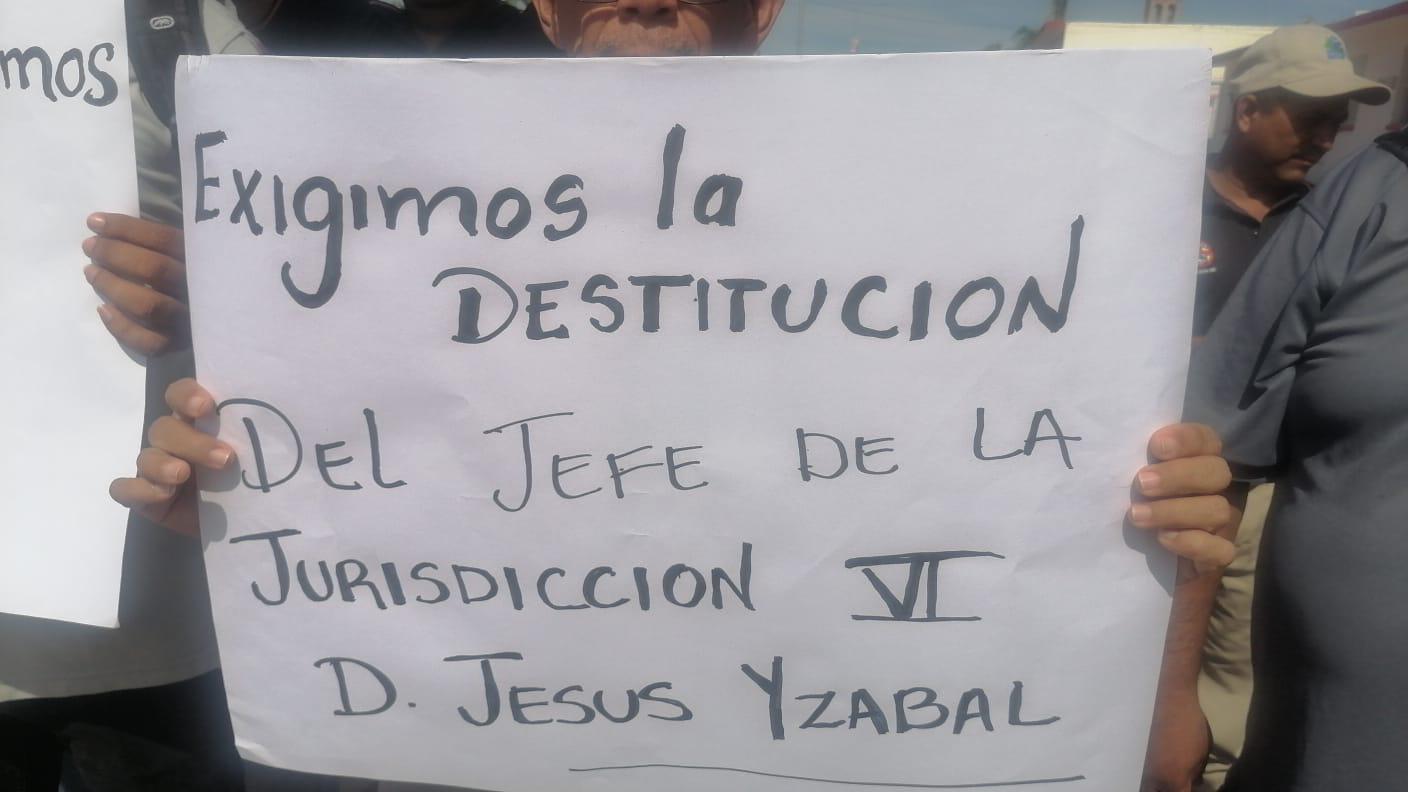 mos
Exigimos la
DESTITUCION
DEL JEFE DE LA
JURISDICCION VI
D. JESUS YZABAL